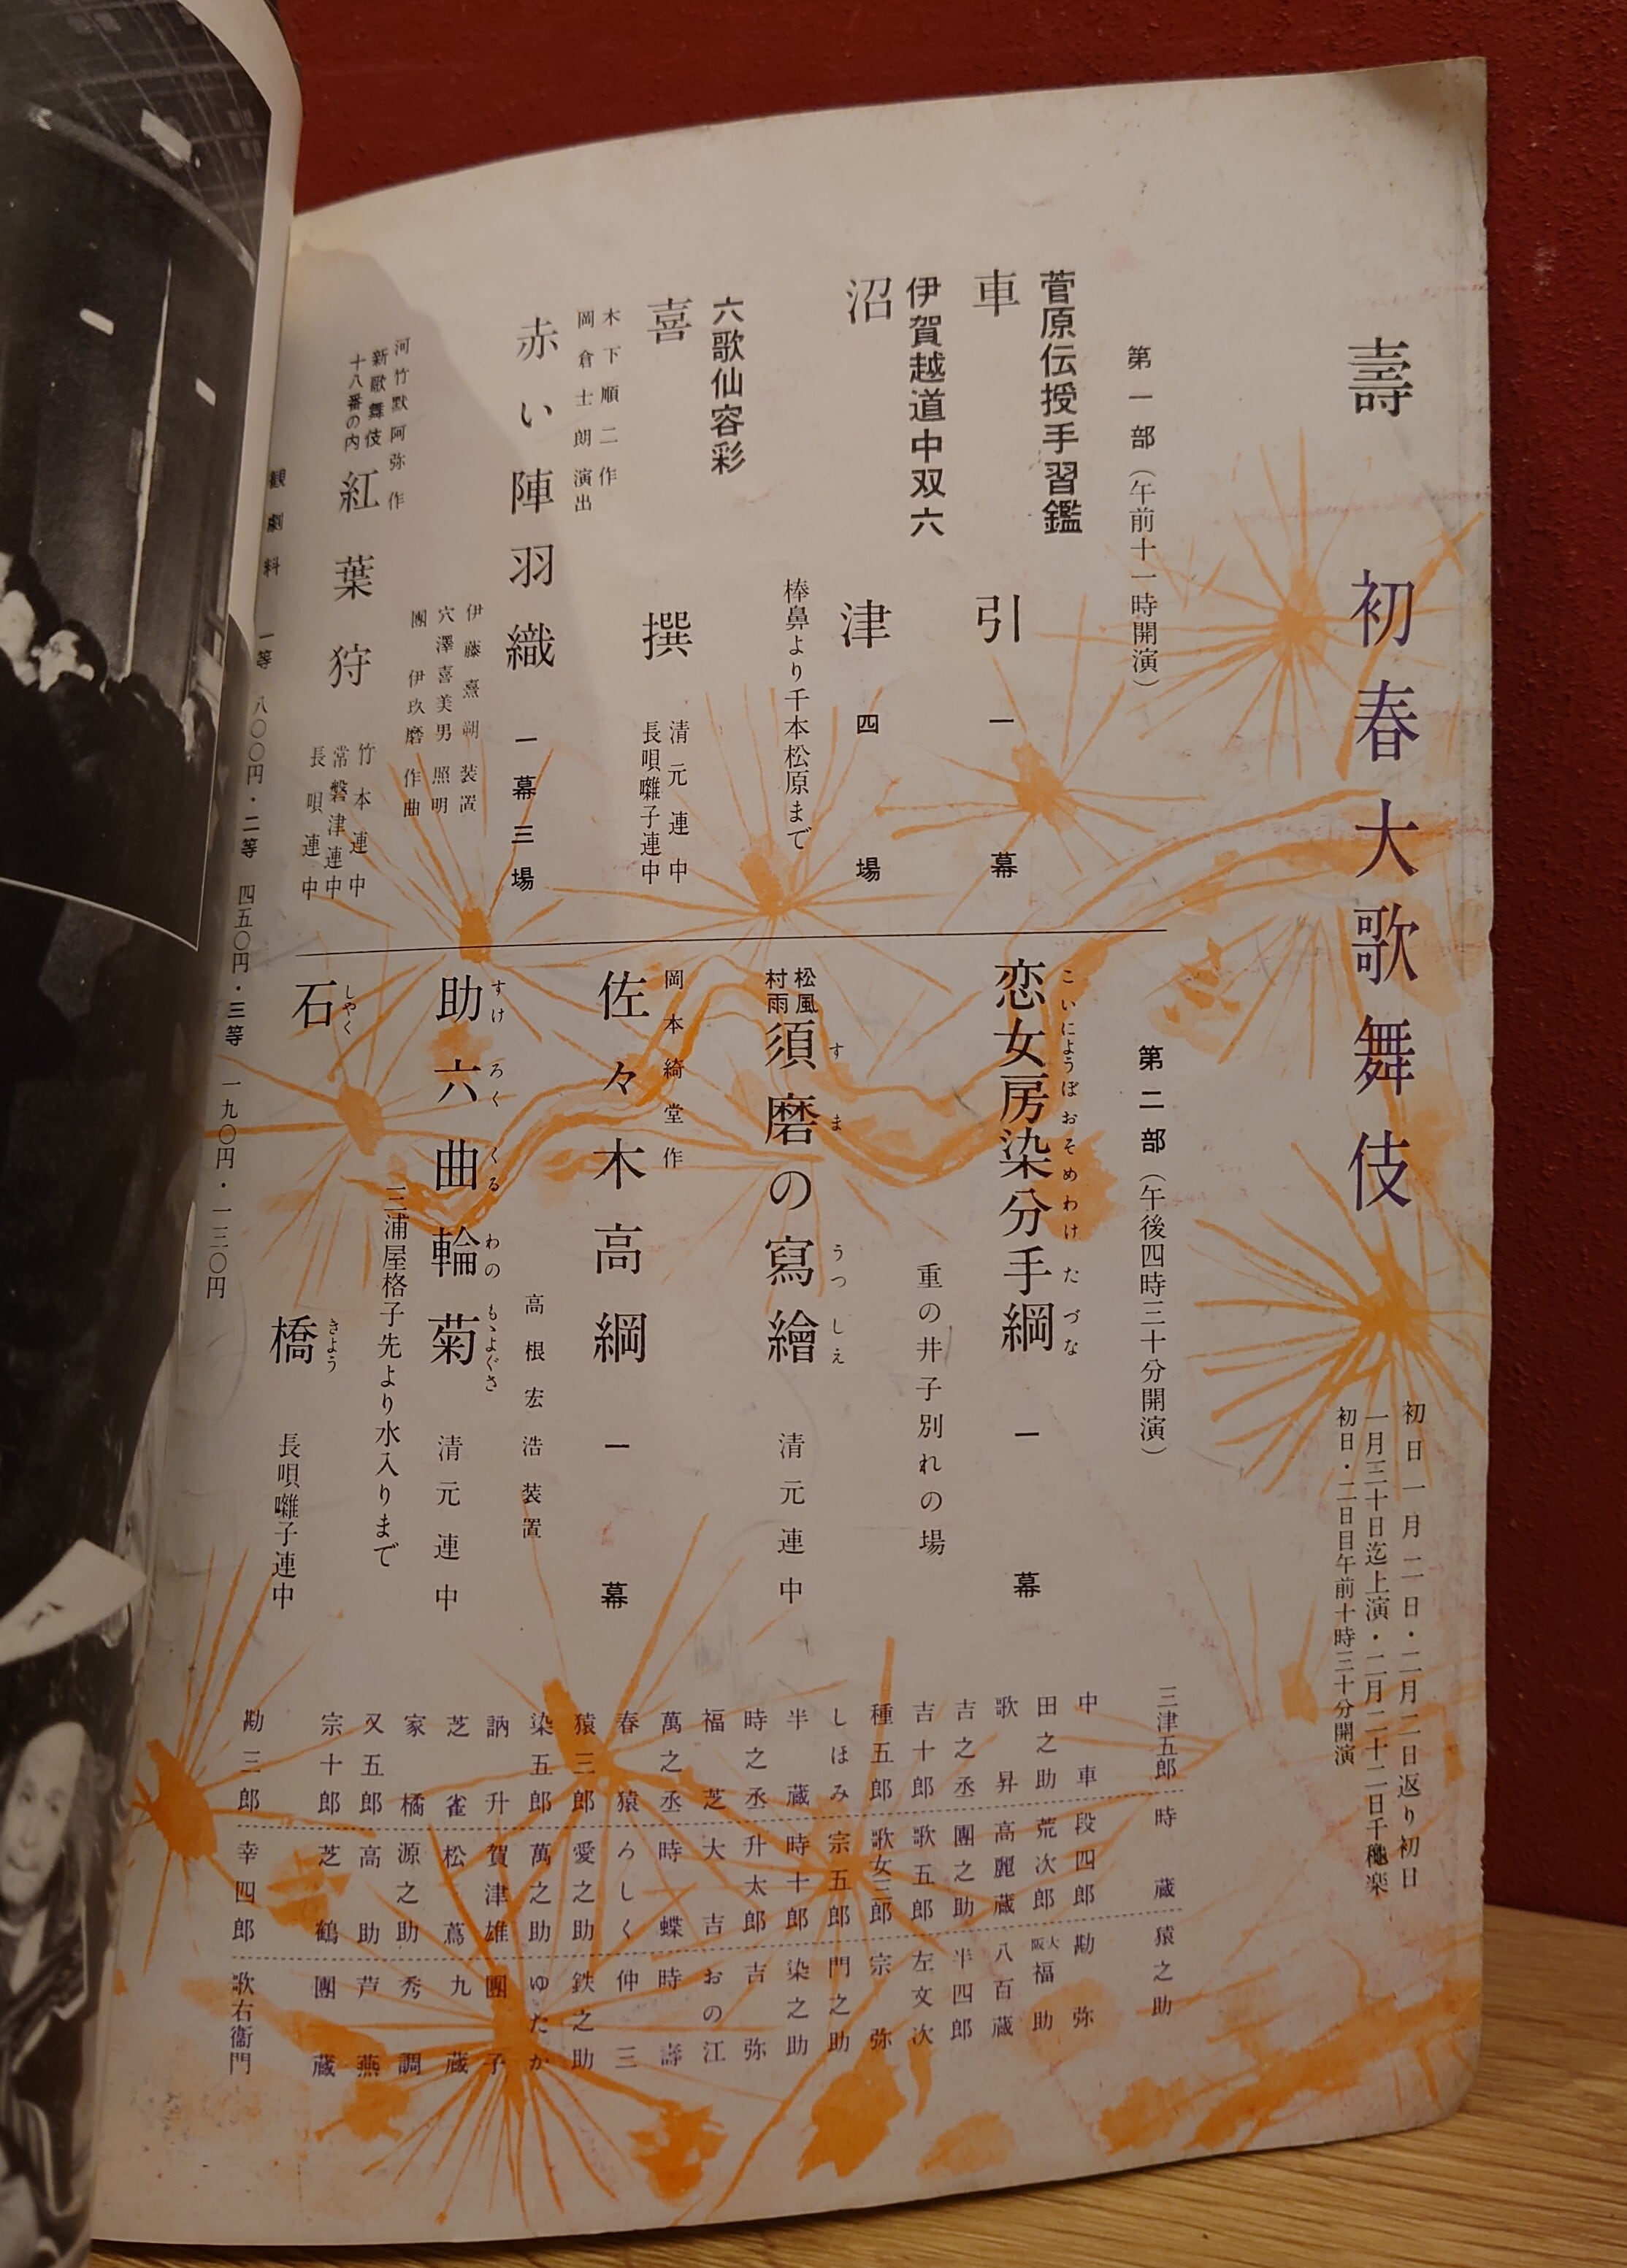 壽 初春大歌舞伎
初日一月二日・二月二日返り初日
一月三十日迄上演・二月二十二日千穐楽
初日・二日目午前十時三十分開演
第一部（午前十一時開演）
菅原伝授手習鑑
車引 一幕
伊賀越道中双六
沼津 四場
棒鼻より千本松原まで
六歌仙容彩
喜撰 清元連中
長唄囃子連中
木下順二作
岡倉士朗演出
赤い陣羽織 一幕三場
伊藤熹朔 装置
穴澤喜美男 照明
團伊玖磨 作曲
河竹默阿弥作
新歌舞伎
十八番の内
紅葉狩 竹本連中
常磐津連中
長唄連中
観劇料 一等 八〇〇円・二等 四五〇円・三等 一九〇円・一二〇円
第二部（午後四時三十分開演）
こいにようぼおそめわけたづな
恋女房染分手綱 一幕
重の井子別れの場
松風
村雨
すまうつしえ
須磨の寫繪 清元連中
岡本綺堂作
佐々木高綱 一幕
高根宏浩装置
すけろくくるわのもゝよぐさ
助六曲輪菊 清元連中
三浦屋格子先より水入りまで
しやくきよう
石橋 長唄囃子連中
三津五郎 時蔵 猿之助
中車 段四郎 勘弥
田之助 荒次郎 大阪福助
歌昇 高麗蔵 八百蔵
吉之丞 團之助 半四郎
吉十郎 歌五郎 左文次
種五郎 歌女三郎 宗弥
しほみ 宗五郎 門之助
半蔵 時十郎 染之助
時之丞 升太郎 吉弥
福芝 大吉 おの江
萬之丞 時蝶 時壽
春猿 ろしく 仲三
猿三郎 愛之助 鉄之助
染五郎 萬之助 ゆたか
訥升 賀津雄 團子
芝雀 松蔦 九蔵
家橘 源之助 秀調
又五郎 高助 芦燕
宗十郎 芝鶴 團蔵
勘三郎 幸四郎 歌右衞門